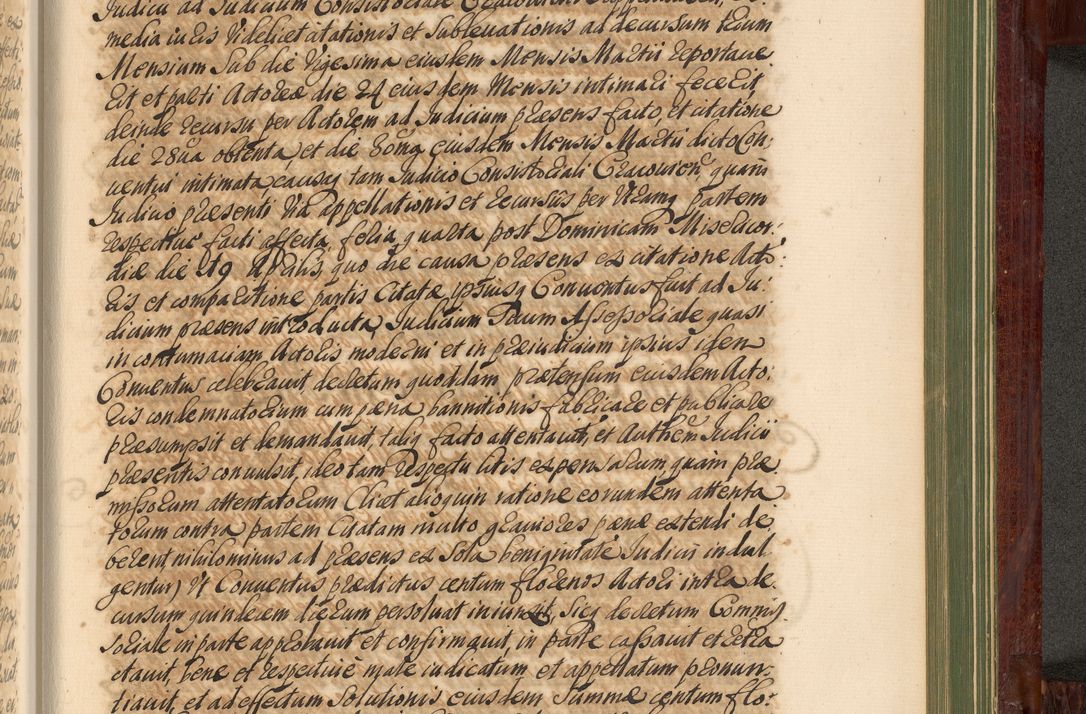 Iudicii ad Iudicium Consistoriale Cracoviense
media in Eis videlicet citationis et sublevationis ad decursum trium
Mensium sub die vigesima eiusdem Mensis Martii reportave
rit et parti Actoreæ die 24 eiusdem Mensis intimari fecerit
deinde recursu per Actorem ad Iudicium præsens facto, et citatione
die 28va obtenta, et die 30ma eiusdem Mensis Martii dicto Con:
ventui intimata, causaq tam Iudicio Consistoriali Cracovien, quam
Iudicio præsenti via appellationis et recursus per utramq partem
respective facti affecta, feria quarta post Dominicam Misericor:
diæ die 19 Aprilis, quo die causa præsens ex citatione Acto:
ris et comparitione partis Citatæ ipsiusq Conventus fuit ad Iu:
dicium præsens introducta, Iudicium suum Assessoriale quasi
in contumaciam Actoris moderni et in præiudicium ipsius idem
Conventus celebravit, decretum quoddam prætensum eiusdem Acto:
ris condemnatorium cum pæna bannitionis fabricare et publicare
præsumpsit et demandavit, taliq facto attentavit, et Authem Iudicii
præsentis convulsit, ideo tam respectu litis expensarum, quam præ
missorum attentatorum (licet alioquin ratione eorundem attenta
torum contra partem Citatam multo graviores pænæ extendi de
berent, nihilominus ad præsens ex sola benignitate Iudicii indul
gentur) Ut Conventus prædictus centum florenos Actori intra de
cursum quindecem dierum persolvat iniunxit, sicq decretum Commis
soriale in parte approbavit et confirmavit, in parte cassavit et retra
ctavit, bene et respective male iudicatum et appellatum pronun:
tiavit, et ad effectum solutionis eiusdem summæ centum flo: